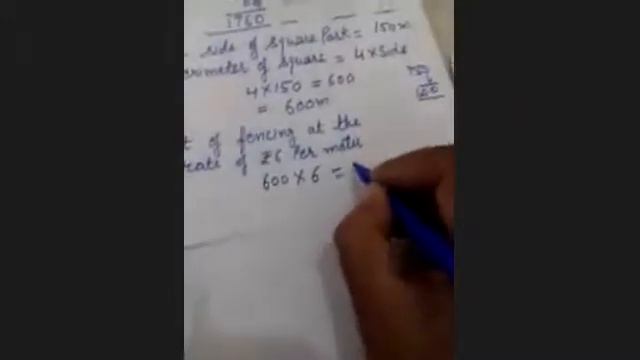 1760
side of square Park = 150m
rimeter of square = 4 × Side
4 × 150 = 600
= 600m
t of fencing at the
rate of ₹6 Per meter
600 × 6 =